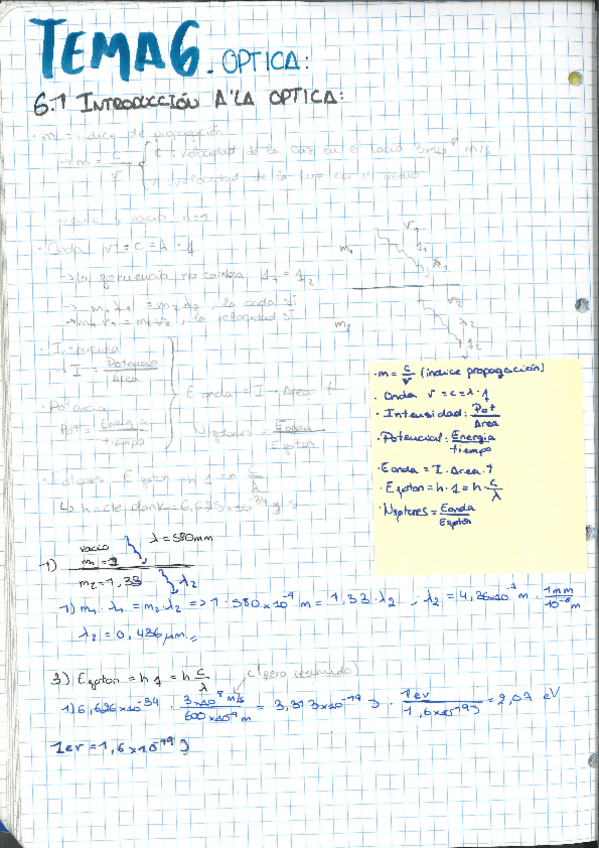 TEMA 6. OPTICA:
6.1 INTRODUCCIÓN A LA OPTICA:
· n = indice de propagación
→ n = c/v { c: velocidad de la luz en el vacio 3x10^8 m/s
v: velocidad de la luz en el medio
y vacio n=1
· Onda v = c = λ · f
→ la frecuencia no cambia f1 = f2
→ n1 λ1 = n2 λ2, la onda sí
→ n1 v1 = n2 v2, la velocidad sí
n1
v1
λ1
f1
n2
v2
λ2
f2
· Intensidad
→ I = Potencia/Area
· Potencia
Pot = Energia/tiempo
E onda = I · Area · t
Nfotones = Eonda/Efoton
E foton = h · f = h c/λ
↳ h = cte plank = 6,625x10^-34 J·s
· n = c/v (indice propagación)
· Onda v = c = λ · f
· Intensidad: Pot/Area
· Potencial: Energia/tiempo
· Eonda = I · Area · t
· Efoton = h · f = h · c/λ
· Nfotones = Eonda/Efoton
1) vacio λ = 580nm
n1 = 1
n2 = 1,33 λ2
1) n1 · λ1 = n2 · λ2 => 1 · 580x10^-9 m = 1,33 · λ2 ; λ2 = 4,36x10^-7 m · 1mm/10^-6 m
λ2 = 0,436 µm
3) E foton = h f = h c/λ (pero resumido)
1) 6,626x10^-34 · 3x10^8 m/s / 600x10^-9 m = 3,313x10^-19 J · 1ev/1,6x10^-19 J = 2,07 eV
1ev = 1,6x10^-19 J